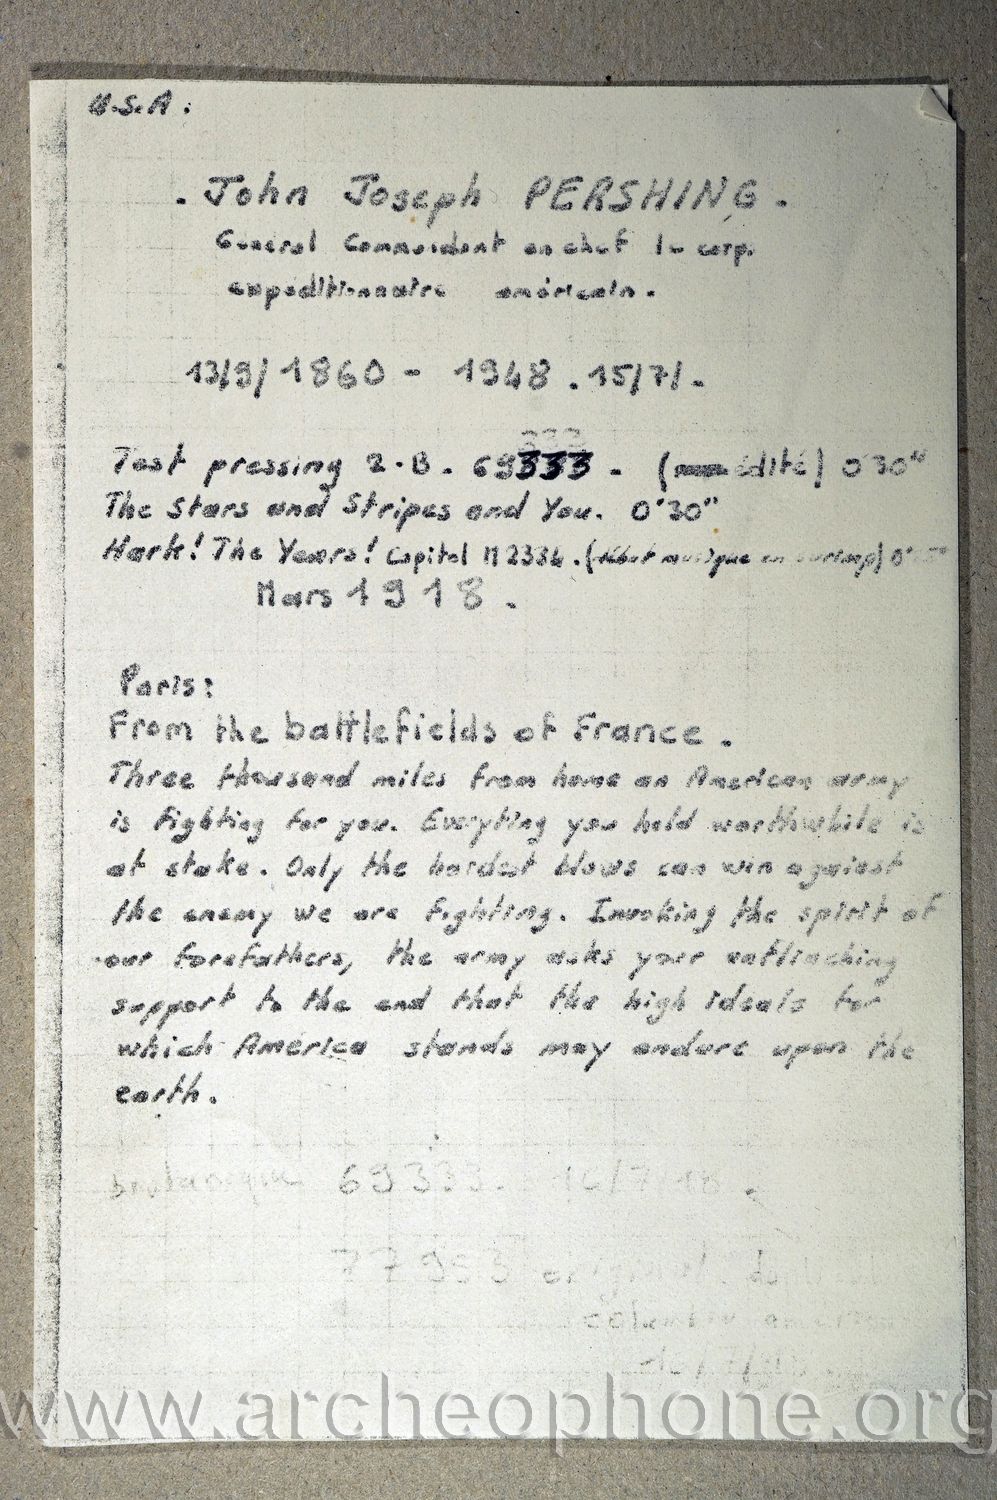 U.S.A.
. John Joseph PERSHING .
Général Commandant en chef le corp.
expéditionnaire américain.
13/9/1860 - 1948 . 15/7/.
333
Test pressing 2.B. 69333 - ( édité) 0'30"
The Stars and Stripes and You. 0'30"
Hark! The Years! Capitol M 2334. (début musique en surimp) 0'
Mars 1918.
Paris:
From the battlefields of France.
Three thousand miles from home an American army
is fighting for you. Everyting you hold worthwhile is
at stake. Only the hardest blows can win against
the enemy we are fighting. Invoking the spirit of
our forefathers, the army asks your unflinching
support to the end that the high ideals for
which América stands may endure upon the
earth.
69333.
77953 original
columbia
www.archeophone.org